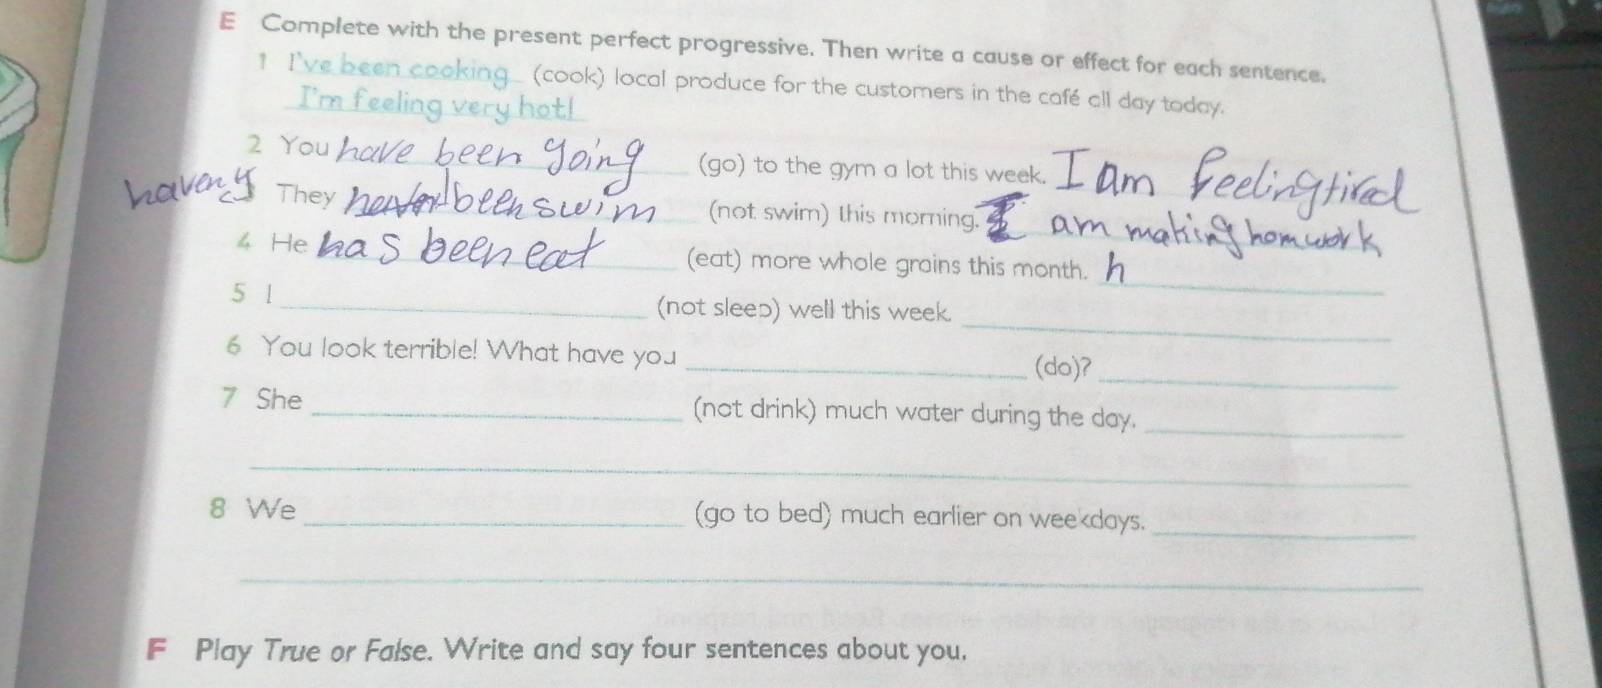 E Complete with the present perfect progressive. Then write a cause or effect for each sentence.
1 I've been cooking (cook) local produce for the customers in the café all day today.
I'm feeling very hot!
2 You have been going (go) to the gym a lot this week. I am feeling tired
They been swim (not swim) this morning. am making homwork
4 He has been eat (eat) more whole grains this month. h
5 I (not sleep) well this week.
6 You look terrible! What have you (do)?
7 She (not drink) much water during the day.
8 We (go to bed) much earlier on weekdays.
F Play True or False. Write and say four sentences about you.